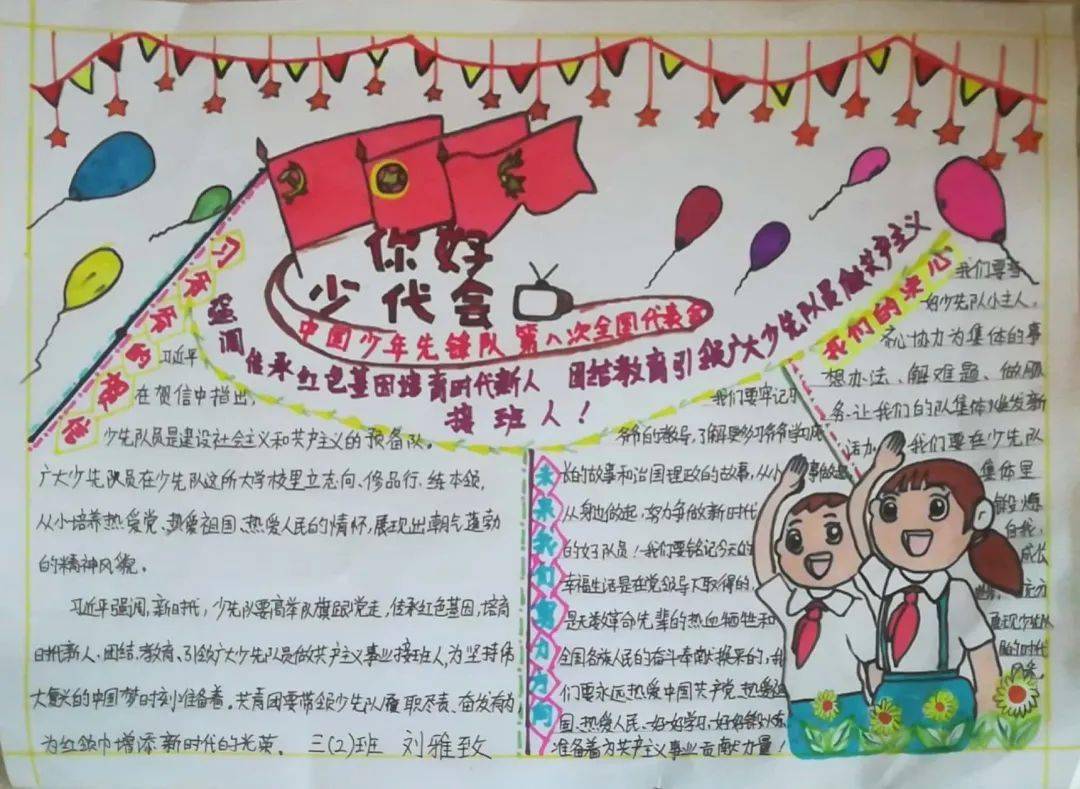 你好
少代会
中国少年先锋队第八次全国代表会
强调传承红色基因培育时代新人 团结教育引领广大少先队员做共产主义
接班人!
习爷爷的
习近平
在贺信中指出,
少先队员是建设社会主义和共产主义的预备队。
广大少先队员在少先队这所大学校里立志向、修品行、练本领,
从小培养热爱党、热爱祖国、热爱人民的情怀,展现出朝气蓬勃
的精神风貌。
习近平强调,新时代,少先队要高举队旗跟党走,传承红色基因,培育
时代新人,团结、教育、引领广大少先队员做共产主义事业接班人,为坚持伟
大复兴的中国梦时刻准备着。共青团要带领少先队履职尽责、奋发有为
为红领巾增添新时代的光荣。 三(2)班 刘雅致
未来我们努力方向
我们要牢记习
爷爷的教导,了解更多习爷爷学习成
长的故事和治国理政的故事,从小事做起
从身边做起,努力争做新时代
的好队员!我们要铭记今天的
幸福生活是在党领导下取得的,
是无数革命先辈的热血牺牲和
全国各族人民的奋斗奉献换来的,我
们要永远热爱中国共产党、热爱祖
国、热爱人民、好好学习、好好锻炼
准备着为共产主义事业贡献力量!
我们的决心
我们要当
好少先队小主人,
齐心协力为集体的事
想办法、解难题、做服
务,让我们的队集体焕发新
活力。我们要在少先队
集体里
锻炼
自我,
成长
展现少先队
的时代
风采。